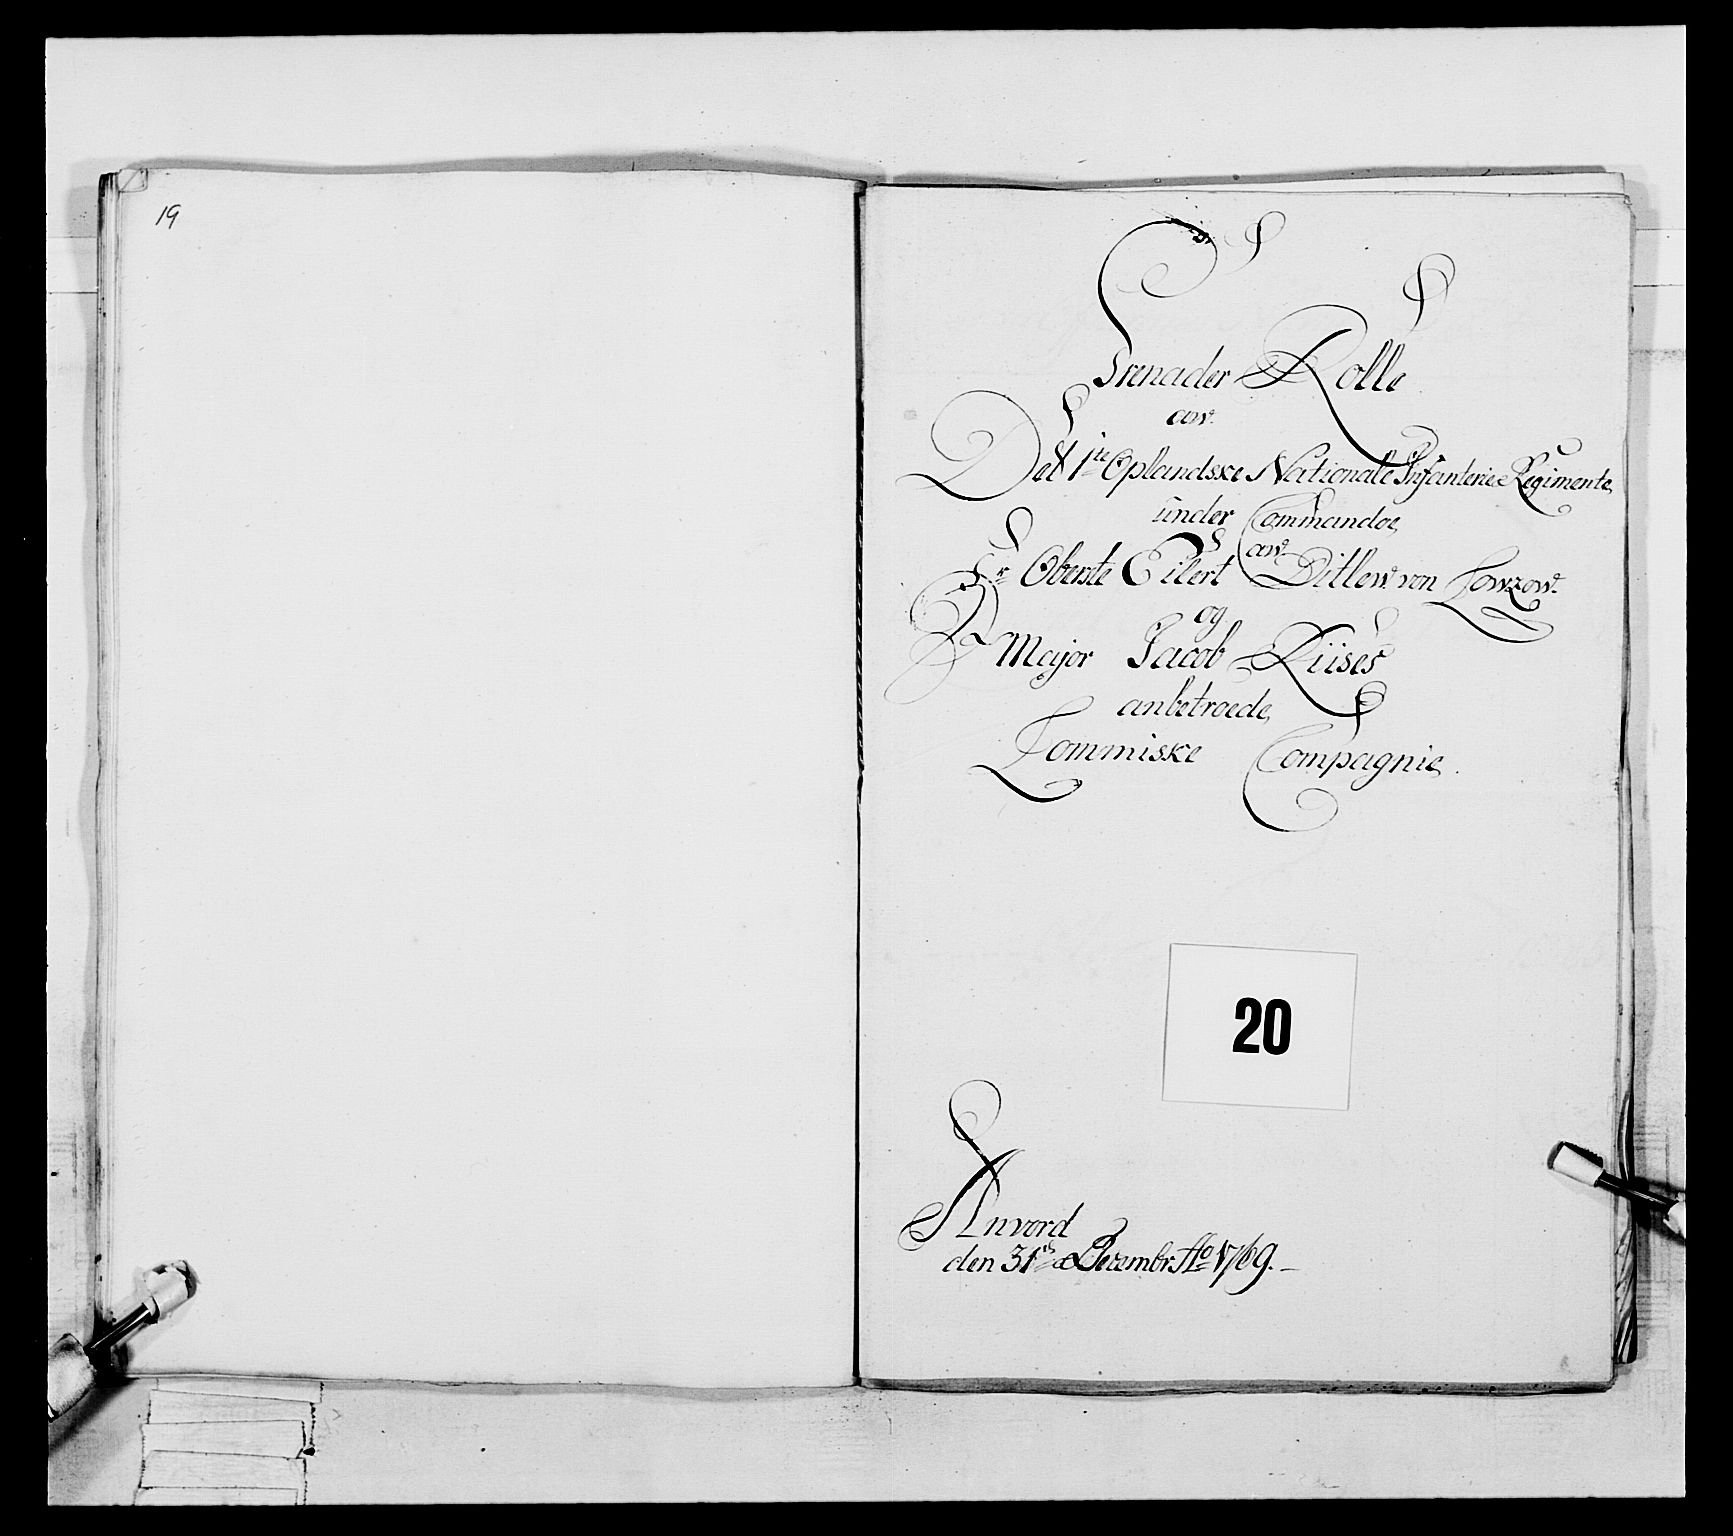 19
Grenader Rolle
aw
Det 1te Oplandske Nationale Infanterie Regimente
under Commandoe
aw
Hr Oberste Eilert Ditlew von Lowzow
og
Major Jacob Riises
anbetroede
Lommiske Compagnie.
20
Anvord
den 31te Decembr Ao 1769.